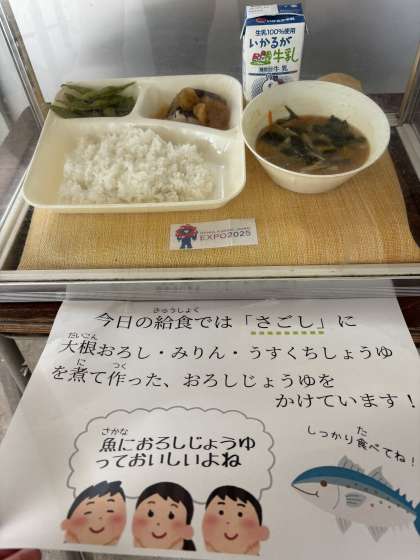 生乳100%使用
いかるが
牛乳
EXPO2025
きゅうしょく
今日の給食では「さごし」に
だいこん
大根おろし・みりん・うすくちしょうゆ
に つく
を煮て作った、おろしじょうゆを
かけています!
さかな
魚におろしじょうゆ
っておいしいよね
た
しっかり食べてね!